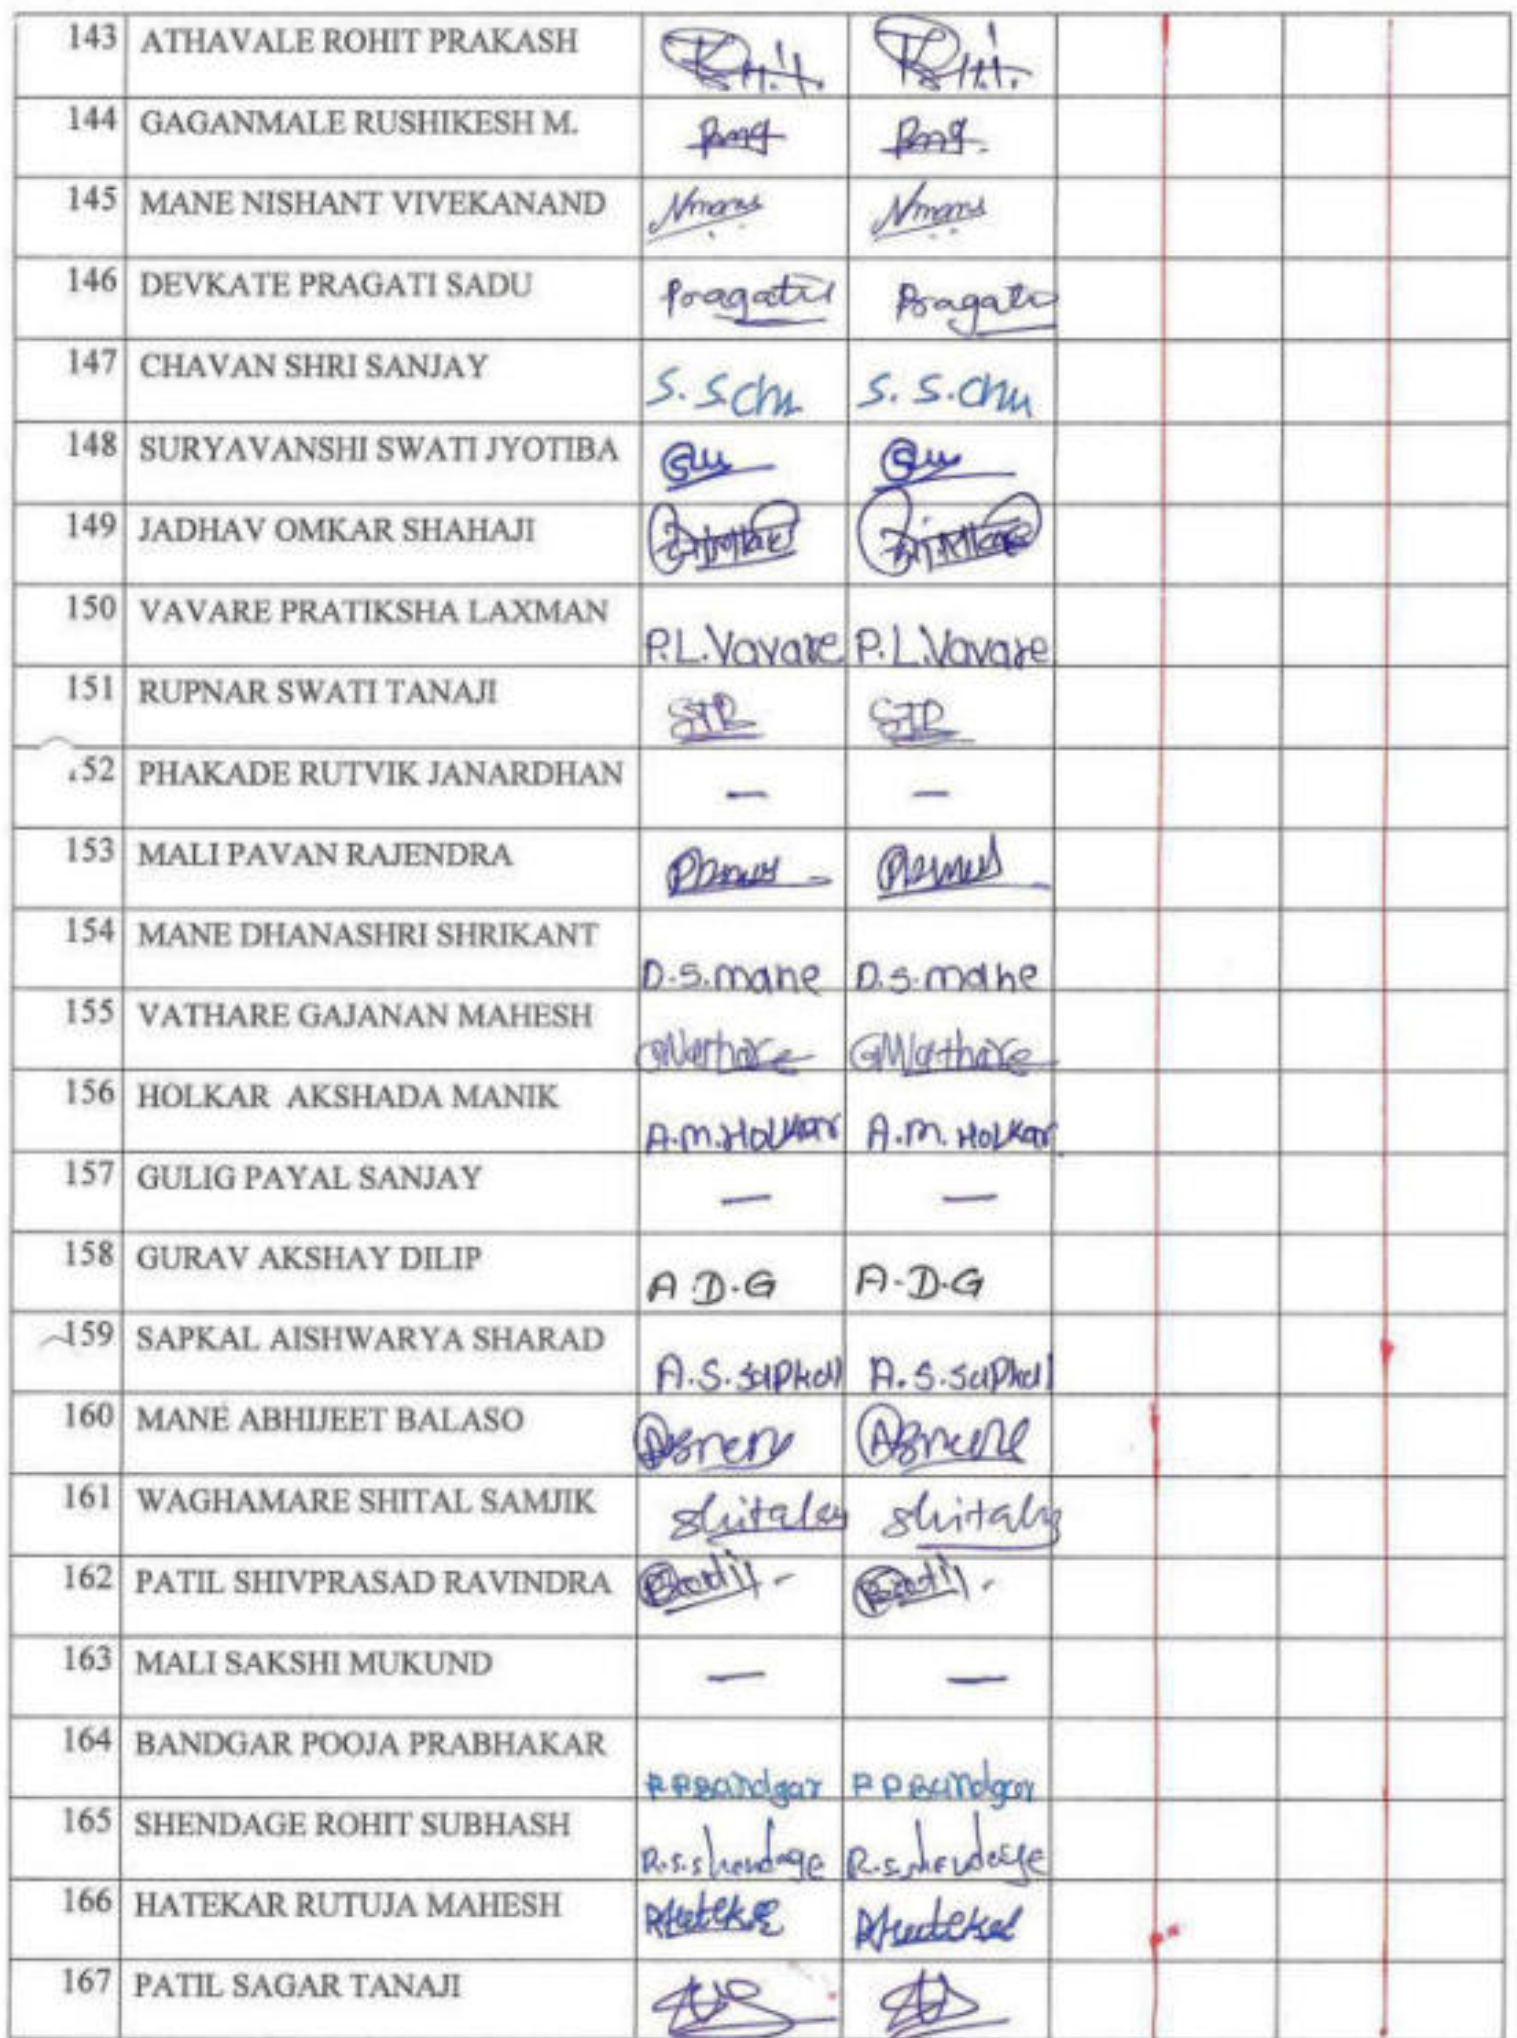 143 ATHAVALE ROHIT PRAKASH
144 GAGANMALE RUSHIKESH M.
145 MANE NISHANT VIVEKANAND
146 DEVKATE PRAGATI SADU Pragati Pragati
147 CHAVAN SHRI SANJAY S. S. Chu S. S. Chu
148 SURYAVANSHI SWATI JYOTIBA
149 JADHAV OMKAR SHAHAJI
150 VAVARE PRATIKSHA LAXMAN P.L.Vavare P.L.Vavare
151 RUPNAR SWATI TANAJI STR STR
52 PHAKADE RUTVIK JANARDHAN — —
153 MALI PAVAN RAJENDRA
154 MANE DHANASHRI SHRIKANT D.S.mane D.S.mane
155 VATHARE GAJANAN MAHESH
156 HOLKAR AKSHADA MANIK A.M.Holkar A.M.Holkar
157 GULIG PAYAL SANJAY — —
158 GURAV AKSHAY DILIP A D.G A.D.G
159 SAPKAL AISHWARYA SHARAD A.S.sapkal A.S.sapkal
160 MANE ABHIJEET BALASO
161 WAGHAMARE SHITAL SAMJIK
162 PATIL SHIVPRASAD RAVINDRA
163 MALI SAKSHI MUKUND — —
164 BANDGAR POOJA PRABHAKAR P P Bandgar P P Bandgar
165 SHENDAGE ROHIT SUBHASH R.S.shendage R.S.shendage
166 HATEKAR RUTUJA MAHESH
167 PATIL SAGAR TANAJI